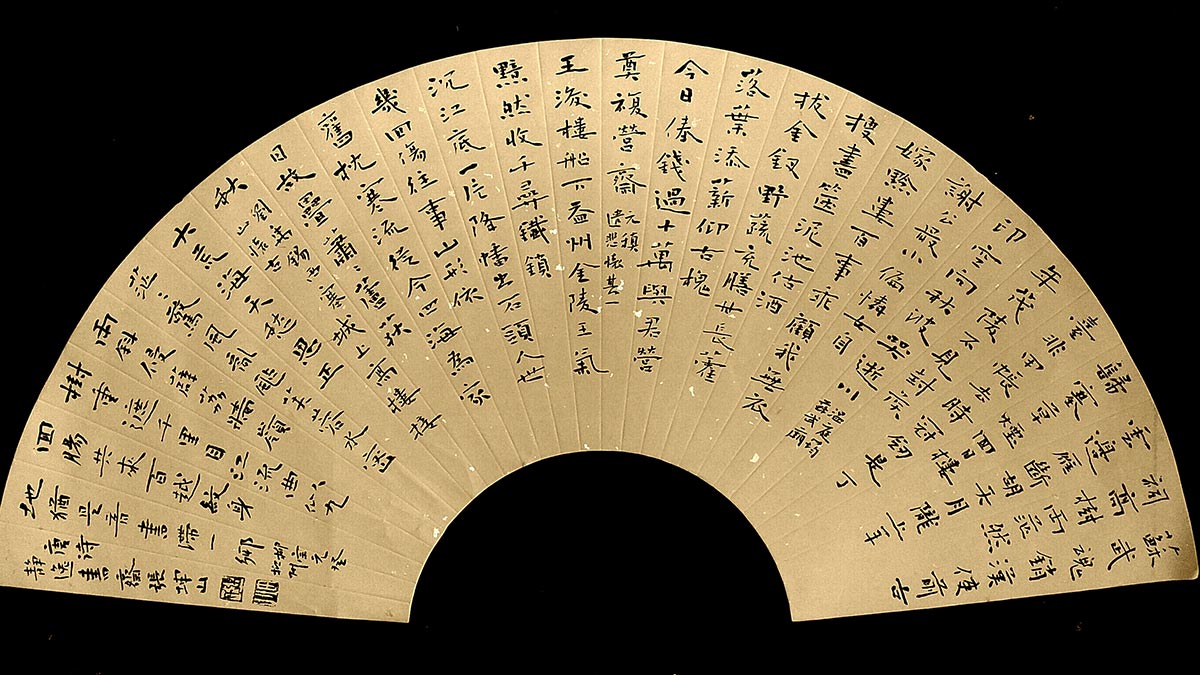 蘇武魂銷漢使前古
祠高樹兩茫然
雲邊雁斷胡天月隴上羊
歸塞草煙回日樓
臺非甲帳去時冠劍是丁
年茂陵不見封侯
印空向秋波哭逝川 溫庭筠蘇武廟
謝公最小偏憐女自
嫁黔婁百事乖顧我無衣
搜盡篋泥他估酒
拔金釵野蔬充膳甘長藿
落葉添薪仰古槐
今日俸錢過十萬與君營
奠複營齋 元稹遣悲懷其一
王濬樓船下益州金陵王氣
黯然收千尋鐵鎖
沉江底一片降幡出石頭人世
幾回傷往事山形依
舊枕寒流從今四海為家
日故壘蕭蕭蘆荻
秋 劉禹錫西塞山懷古 城上高樓接
大荒海天愁思正
茫茫驚風亂颭芙蓉水密
雨斜侵薜荔牆嶺
樹重遮千里目江流曲似九
回腸共來百越紋身
地猶是音書滯一鄉 柳宗元登柳州
唐詩
靜逸書齋張坤山